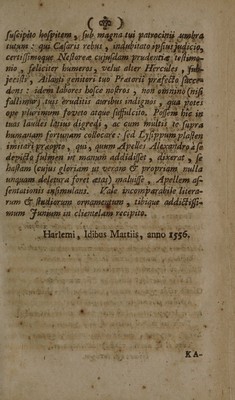 suscipito hospitem, sub magna tui patrocinii umbra
tutum: qui Cæsaris rebus, indubitato ipsius judicio,
certissimoque Nestoreæ cujusdam prudentiæ testimo-
nio, feliciter humeros, velut alter Hercules, sub-
jecisti, Atlanti genitori tuo Prætorii præfecto succe-
dens: idem labores hosce nostros, non omnino (nisi
fallimur) tuis eruditis auribus indignos, qua potes
ope plurimum foveto atque suffulcito. Possem hic in
tuas laudes latius digredi, ac cum multis te supra
humanam fortunam collocare: sed Lysippum potius
imitari præopto, qui, quum Apelles Alexandro à se
depicto fulmen in manum addidisset, dixerat, se
hastam (cujus gloriam ut veram & propriam nulla
unquam deletura foret ætas) maluisse, Apellem as-
sentationis insimulans. Vale incomparabile litera-
rum & studiorum ornamentum, tibique addictissi-
mum Junium in clientelam recipito.
Harlemi, Idibus Martiis, anno 1556.
KA-